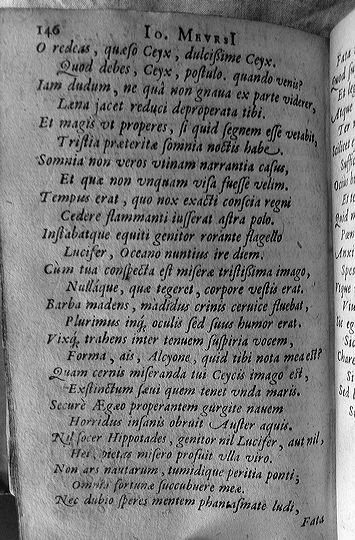 146 IO. MEVRSI
O redeas, quæso Ceyx, dulcissime Ceyx.
Quod debes, Ceyx, postulo. quando venis?
Iam dudum, ne quà non gnaua ex parte viderer,
Læna jacet reduci deproperata tibi.
Et magis vt properes, si quid segnem esse vetabit,
Tristia præteritæ somnia noctis habe.
Somnia non veros vtinam narrantia casus,
Et quæ non vnquam visa fuisse velim.
Tempus erat, quo nox exacti conscia regni
Cedere flammanti iusserat astra polo.
Instabatque equiti genitor rorante flagello
Lucifer, Oceano nuntius ire diem.
Cùm tua conspecta est miseræ tristissima imago,
Nullàque, quæ tegeret, corpore vestis erat.
Barba madens, madidus crinis ceruice fluebat,
Plurimus inq; oculis sed suus humor erat.
Vixq; trahens inter tenuem suspiria vocem,
Forma, ais, Alcyone, quid tibi nota mea est?
Quam cernis miseranda tui Ceycis imago est,
Exstinctum sæui quem tenet vnda maris.
Securè Ægæo properantem gurgite nauem
Horridus insanis obruit Auster aquis.
Nil socer Hippotades, genitor nil Lucifer, aut nil,
Hei, pietas misero profuit vlla viro.
Non ars nautarum, tumidique peritia ponti;
Omnia fortunæ succubuere meæ.
Nec dubio speres mentem phantasmate ludi,
Fata